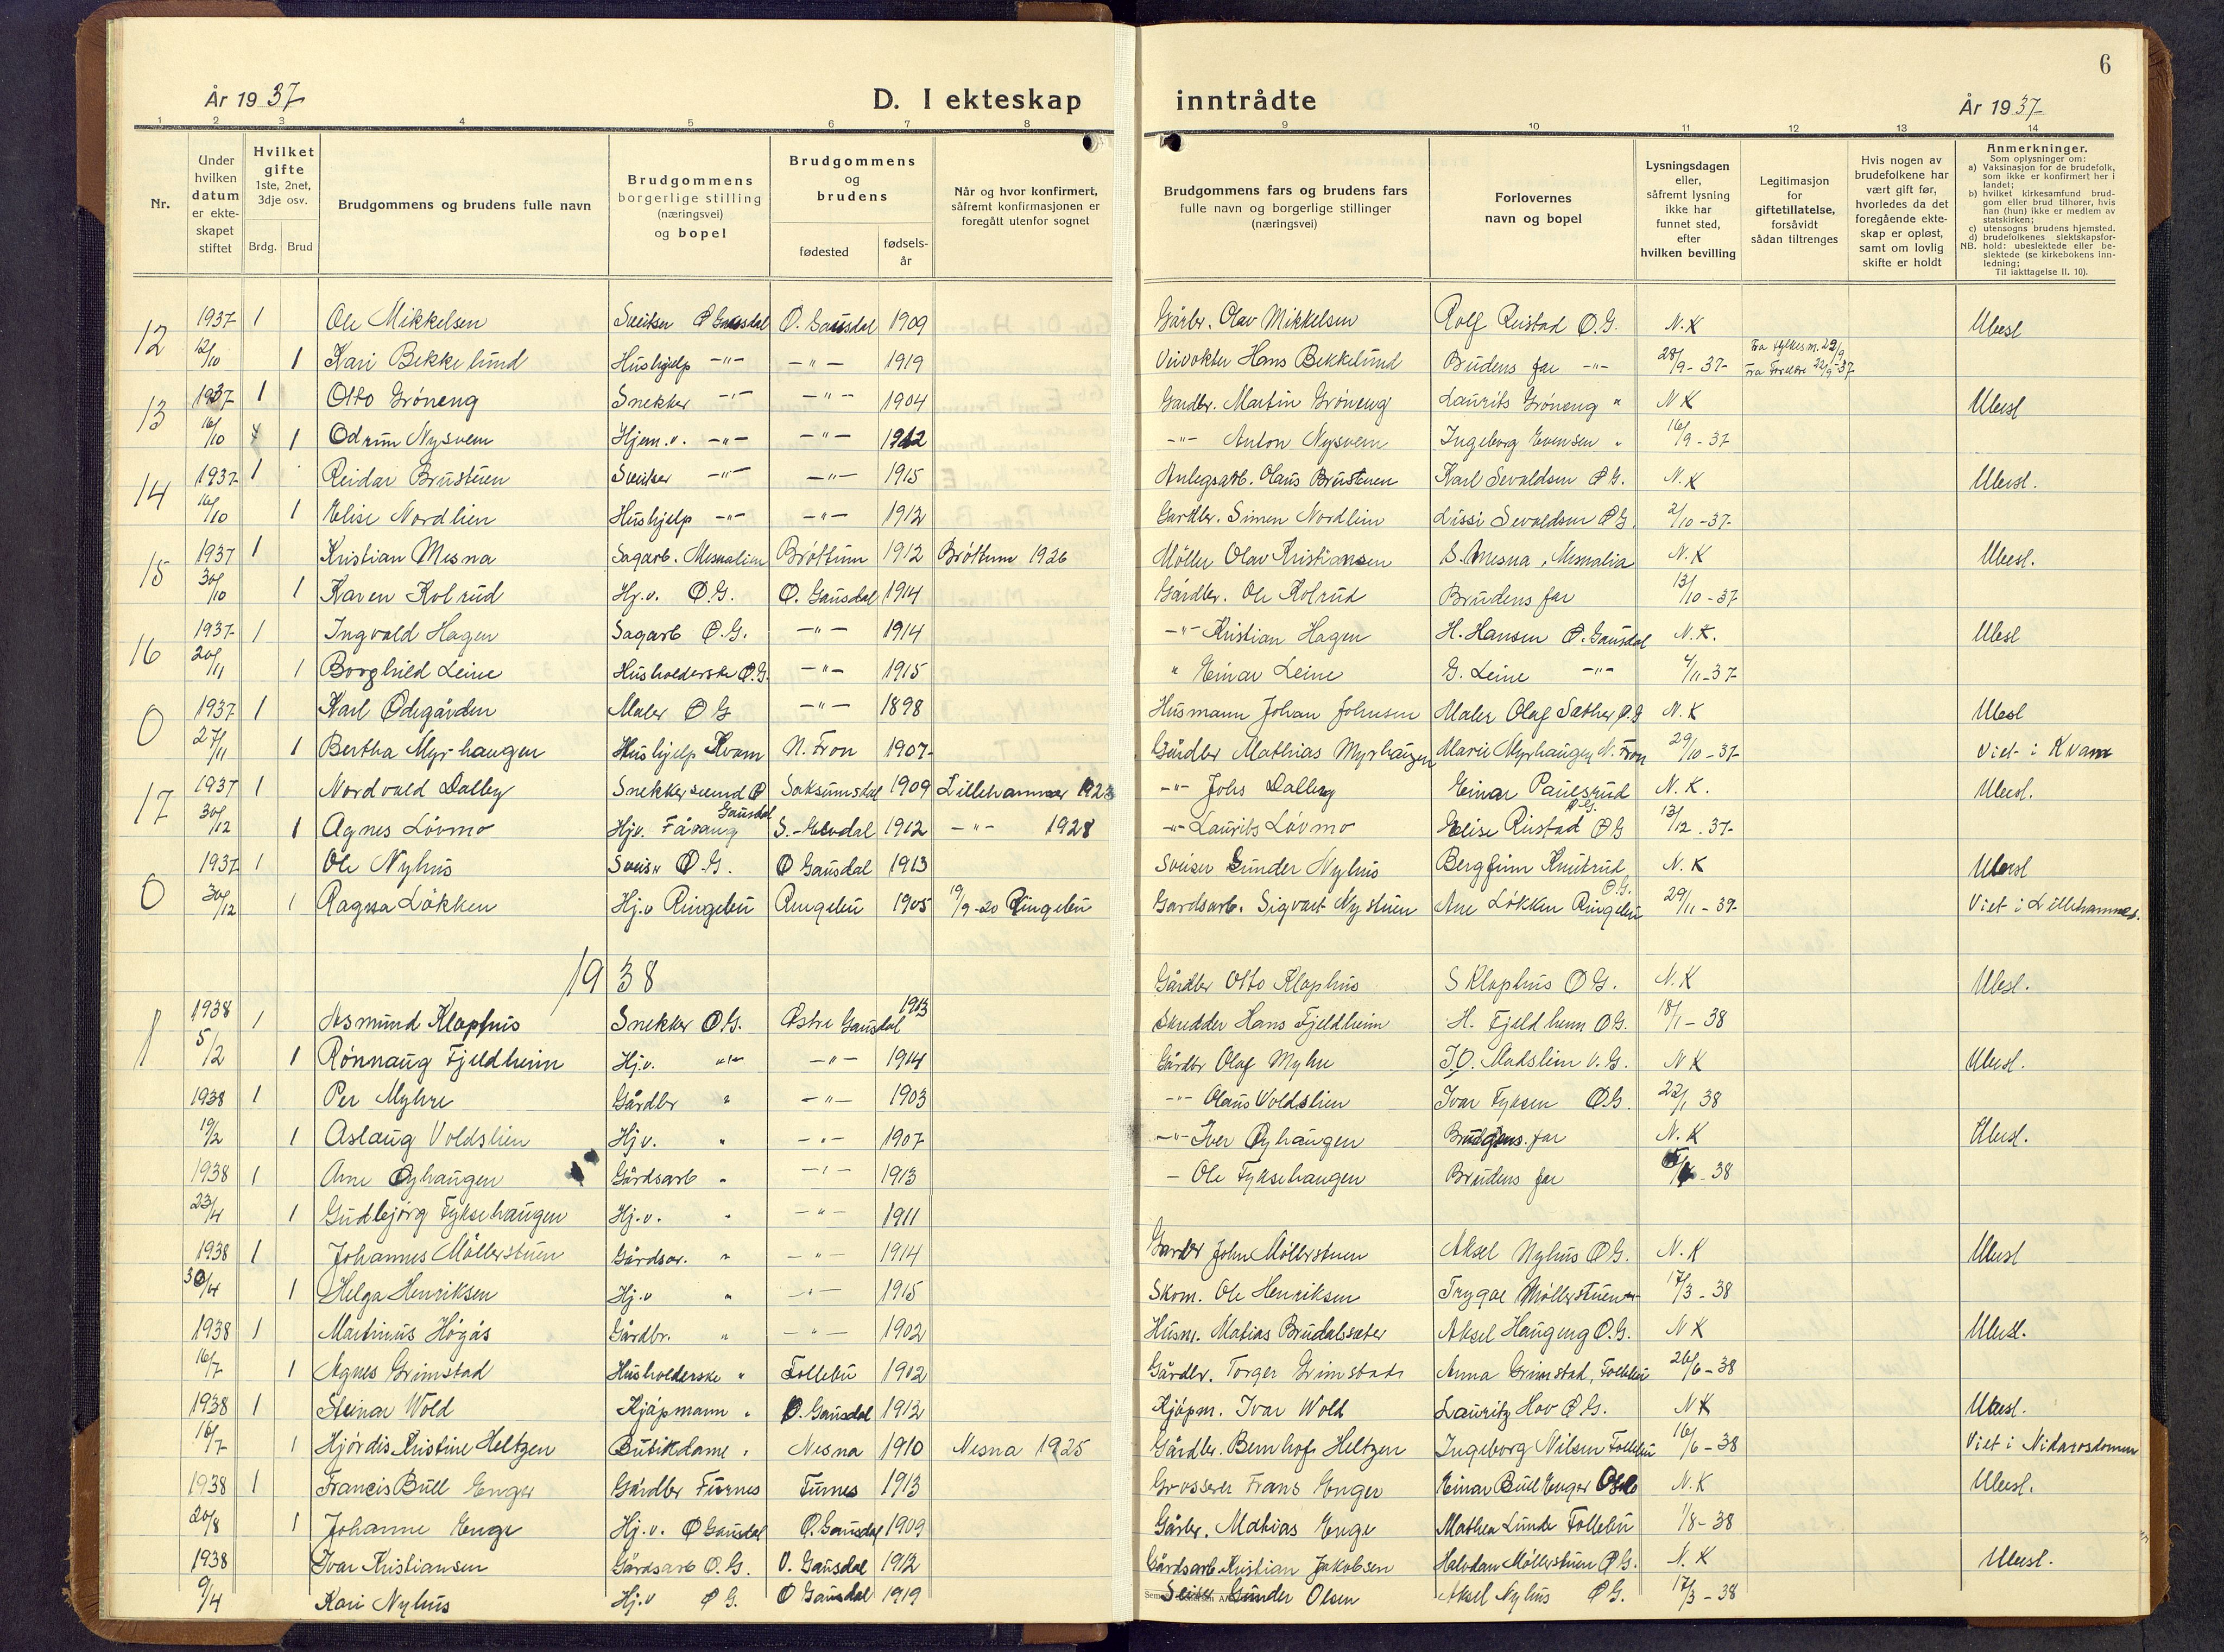 År 1937
D. I ekteskap
inntrådte
År 1937
6
1 2 3 4 5 6 7 8 9 10 11 12 13 14
Nr.
Under hvilken datum er ekteskapet stiftet
Hvilket gifte 1ste, 2net, 3dje osv.
Brdg. Brud
Brudgommens og brudens fulle navn
Brudgommens borgerlige stilling (næringsvei) og bopel
Brudgommens og brudens
fødested
fødsels-år
Når og hvor konfirmert, såfremt konfirmasjonen er foregått utenfor sognet
Brudgommens fars og brudens fars fulle navn og borgerlige stillinger (næringsvei)
Forlovernes navn og bopel
Lysningsdagen eller, såfremt lysning ikke har funnet sted, efter hvilken bevilling
Legitimasjon for giftetillatelse, forsåvidt sådan tiltrenges
Hvis nogen av brudefolkene har vært gift før, hvorledes da det foregående ekteskap er opløst, samt om lovlig skifte er holdt
Anmerkninger.
Som oplysninger om:
a) Vaksinasjon for de brudefolk, som ikke er konfirmert her i landet;
b) hvilket kirkesamfund brudgom eller brud tilhører, hvis han (hun) ikke er medlem av statskirken;
c) utensogns brudens hjemsted.
d) brudefolkenes slektskapsforhold: ubeslektede eller beslektede (se kirkebokens innledning;
NB. Til iakttagelse II. 10).
12 1937 1 Ole Mikkelsen Sveitser Ø Gausdal Ø. Gausdal 1909 Gårbr. Olav Mikkelsen Rolf Reistad Ø.G. N.K Ubesl
12/10 1 Kari Bekkelund Hushjelp -"- -"- 1919 Veivokter Hans Bekkelund Brudens far -"- 28/9-37 Fra fylkesm. 22/9
13 1937 1 Otto Grøneng Snekker -"- -"- 1904 Gardbr. Martin Grøneng Laurits Grøneng " N K Ubesl
16/10 1 Odrun Nysveen Hjem.v. -"- -"- 1912 -"- Anton Nysveen Ingeborg Evensen " 16/9-37
14 1937 1 Reidar Brustuen Sveitser -"- -"- 1915 Anlegsarb. Olaus Brustuen Karl Sevaldsen Ø G. N.K Ubesl.
16/10 1 Elise Nordlien Hushjelp -"- -"- 1912 Gardbr. Simen Nordlien Lissi Sevaldsen Ø G. 2/10-37
15 1937 1 Kristian Mesna Sagarb. Mesnalien Brøttum 1912 Brøttum 1926 Møller Olav Kristiansen S. Mesna, Mesnalia N.K Ubesl.
30/10 1 Karen Kolrud Hj.v. Ø.G. Ø. Gausdal 1914 Gårdbr. Ole Kolrud Brudens far 13/10-37
16 1937 1 Ingvald Hagen Sagarb Ø.G. -"- 1914 -"- Kristian Hagen H. Hansen Ø. Gausdal N.K. Ubesl
20/11 1 Borghild Leine Husholderske Ø.G. -"- 1915 " Einar Leine G. Leine -"- 4/11-37
0 1937 1 Karl Ødegården Maler Ø G -"- 1898 Husmann Johan Johnsen Maler Olaf Sæther, Ø.G N.K Ubesl
27/11 1 Bertha Myrhaugen Hushjelp Kvam N. Fron 1907 Gårdbr Mathias Myrhaugen Marie Myrhaugen N. Fron 29/10-37 Viet i Kvam
17 1937 1 Nordvald Dalby Snekkersvend Ø Gausdal Saksumsdal 1909 Lillehammer 1923 -"- Johs Dalby Einar Paulsrud Ø G. N.K. Ubesl.
30/12 1 Agnes Løvmo Hjv. Fåvang S.-Elvdal 1912 -"- 1928 -"- Laurits Løvmo Elise Ristad Ø G 13/12.37
0 1937 1 Ole Nyhus Sveiser Ø.G. Ø Gausdal 1913 Sveiser Gunder Nyhus Bergfinn Knutrud Ø.G. N.K Ubesl
30/12 1 Ragna Løkken Hj.v Ringebu Ringebu 1905 19/9-20 Ringebu Gardsarb. Sigvart Nystuen Ane Løkken Ringebu 29/11-37 Viet i Lillehammer.
1938
1 1938 1 Asmund Klaphus Snekker Ø G. Østre Gausdal 1913 Gårdbr Otto Klaphus S Klaphus Ø G. N.K Ubesl.
5/2 1 Rønnaug Fjeldheim Hj.v. -"- -"- 1914 Skredder Hans Fjeldheim H. Fjeldheim Ø G. 18/1-38
1938 1 Per Myhre Gårdbr " -"- 1903 Gårdbr Olaf Myhre J.O. Madslien V. G. N K Ubesl.
19/2 1 Aslaug Voldslien Hjv. " -"- 1907 -"- Olaus Voldslien Ivar Fyksen Ø G. 22/1 38
1938 1 Arne Øyhaugen Gårdsarb " -"- 1913 -"- Iver Øyhaugen Brudgoms. far N.K Ubesl.
23/4 1 Gudbjørg Fyksehaugen Hj.v. " -"- 1911 - Ole Fyksehaugen Brudens far 38
1938 1 Johannes Møllerstuen Gårdsar. " -"- 1914 Garder John Møllerstuen Aksel Nyhus Ø G. N.K Ubesl
30/4 1 Helga Henriksen Hj.v " -"- 1915 Skom. Ole Henriksen Trygve Møllerstuen 17/3-38
1938 1 Martinus Høgås Gårdbr. " -"- 1902 Husm. Matias Brudalsæter Aksel Haugeng Ø.G. N K Ubesl.
16/7 1 Agnes Grimstad Husholderske " Follebu 1902 Gårdbr. Torger Grimstad Anna Grimstad, Follebu 26/6-38
1938 1 Steinar Wold Kjøpmann " Ø. Gausdal 1912 Kjøpm. Ivar Wold Lauritz Hov Ø G. N K Ubesl.
16/7 1 Hjørdis Kristine Heltzen Butikdame " Nesna 1910 Nesna 1925 Gårdbr. Bernhof Heltzen Ingeborg Nilsen Follebu 16/6-38 Viet i Nidarosdomen
1938 1 Francis Bull Enger Gårdbr Furnes Furnes 1913 Grosserer Frans Enger Einar Bull Enger Oslo N.K Ubesl.
20/8 1 Johanne Enge Hj.v. Ø Gausdal Ø. Gausdal 1909 Gårbr. Mathias Enge Mathea Lunde Follebu 1/8-38
1938 Ivar Kristiansen Gårdsarb Ø. G. V. Gausdal 1912 Gårdsarb. Kristian Jakobsen Halvdan Møllerstuen Ø G. N.K Ubesl.
9/4 Kari Nyhus Hj.v Ø G. Ø Gausdal 1919 Gunder Olsen Aksel Nyhus Ø G. 17/3-38